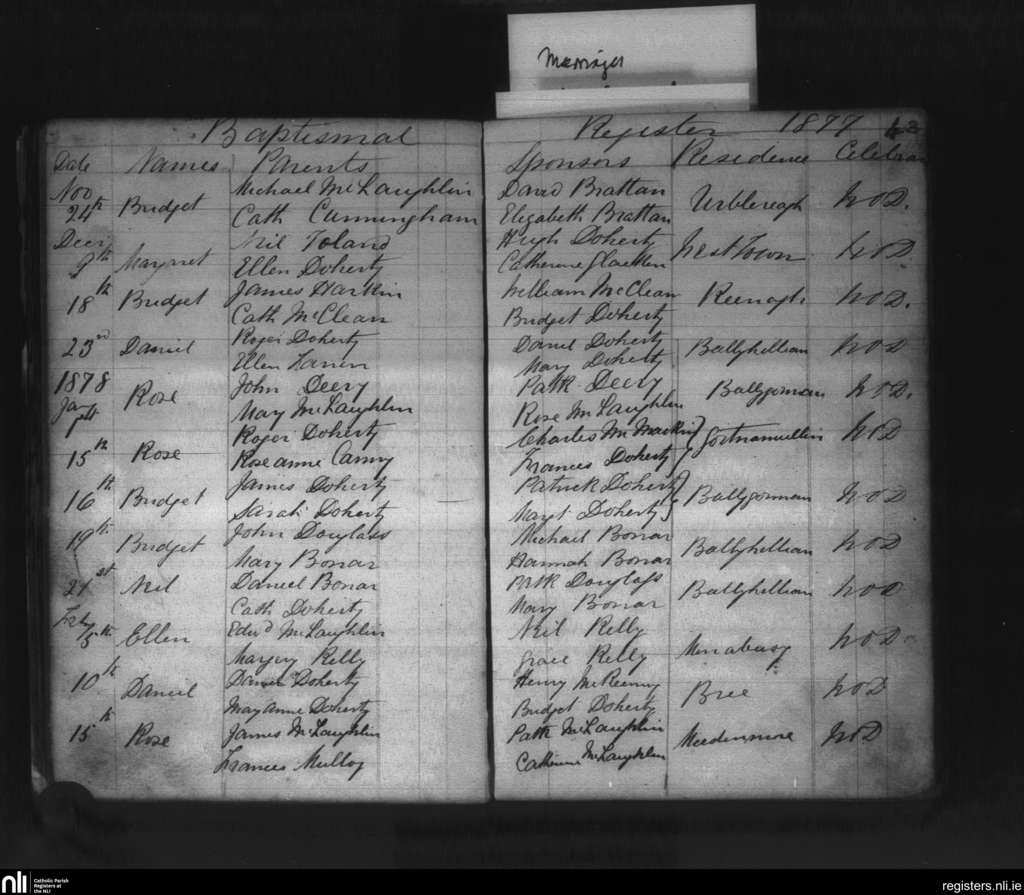 Marriages
Baptismal Register 1877
Date Names Parents Sponsors Residence Celebran
Nov Michael McLaughlin David Brattan
24th Bridget Urblereagh WOD.
Cath Cunningham Elizabeth Brattan
Decr Neil Toland Hugh Doherty
9th Margret West Town WOD.
Ellen Doherty Catherine Glacken
18th Bridget James Harkin William McClean Keenagh WOD.
Cath McClean Bridget Doherty
23rd Daniel Roger Doherty Daniel Doherty Ballyhillian WOD
Ellen Mary Doherty
1878 John Deery Patk Deery
Jany Rose Ballygorman WOD.
7th Mary McLaughlin Rose McLaughlin
Roger Doherty Charles
15th Rose Gortnamullin WOD
Roseanne Canny Frances Doherty
James Doherty Patrick Doherty
16th Bridget Ballygorman WOD
Sarah Doherty Margt Doherty
19th Bridget John Douglass Michael Bonar Ballyhillian WOD
Mary Bonar Hannah Bonar
21st Neil Daniel Bonar Patk Douglass Ballyhillian WOD
Cath Doherty Mary Bonar
Feby Edwd McLaughlin Neil Kelly
5th Ellen WOD
Margery Kelly Grace Kelly
10th Daniel Daniel Doherty Henry McKenny Bree WOD
Maryanne Doherty Bridget Doherty
15th Rose James McLaughlin Patk McLaughlin WOD
Frances Mulloy Catherine McLaughlin
nli Catholic Parish
Registers at
the NLI
registers.nli.ie